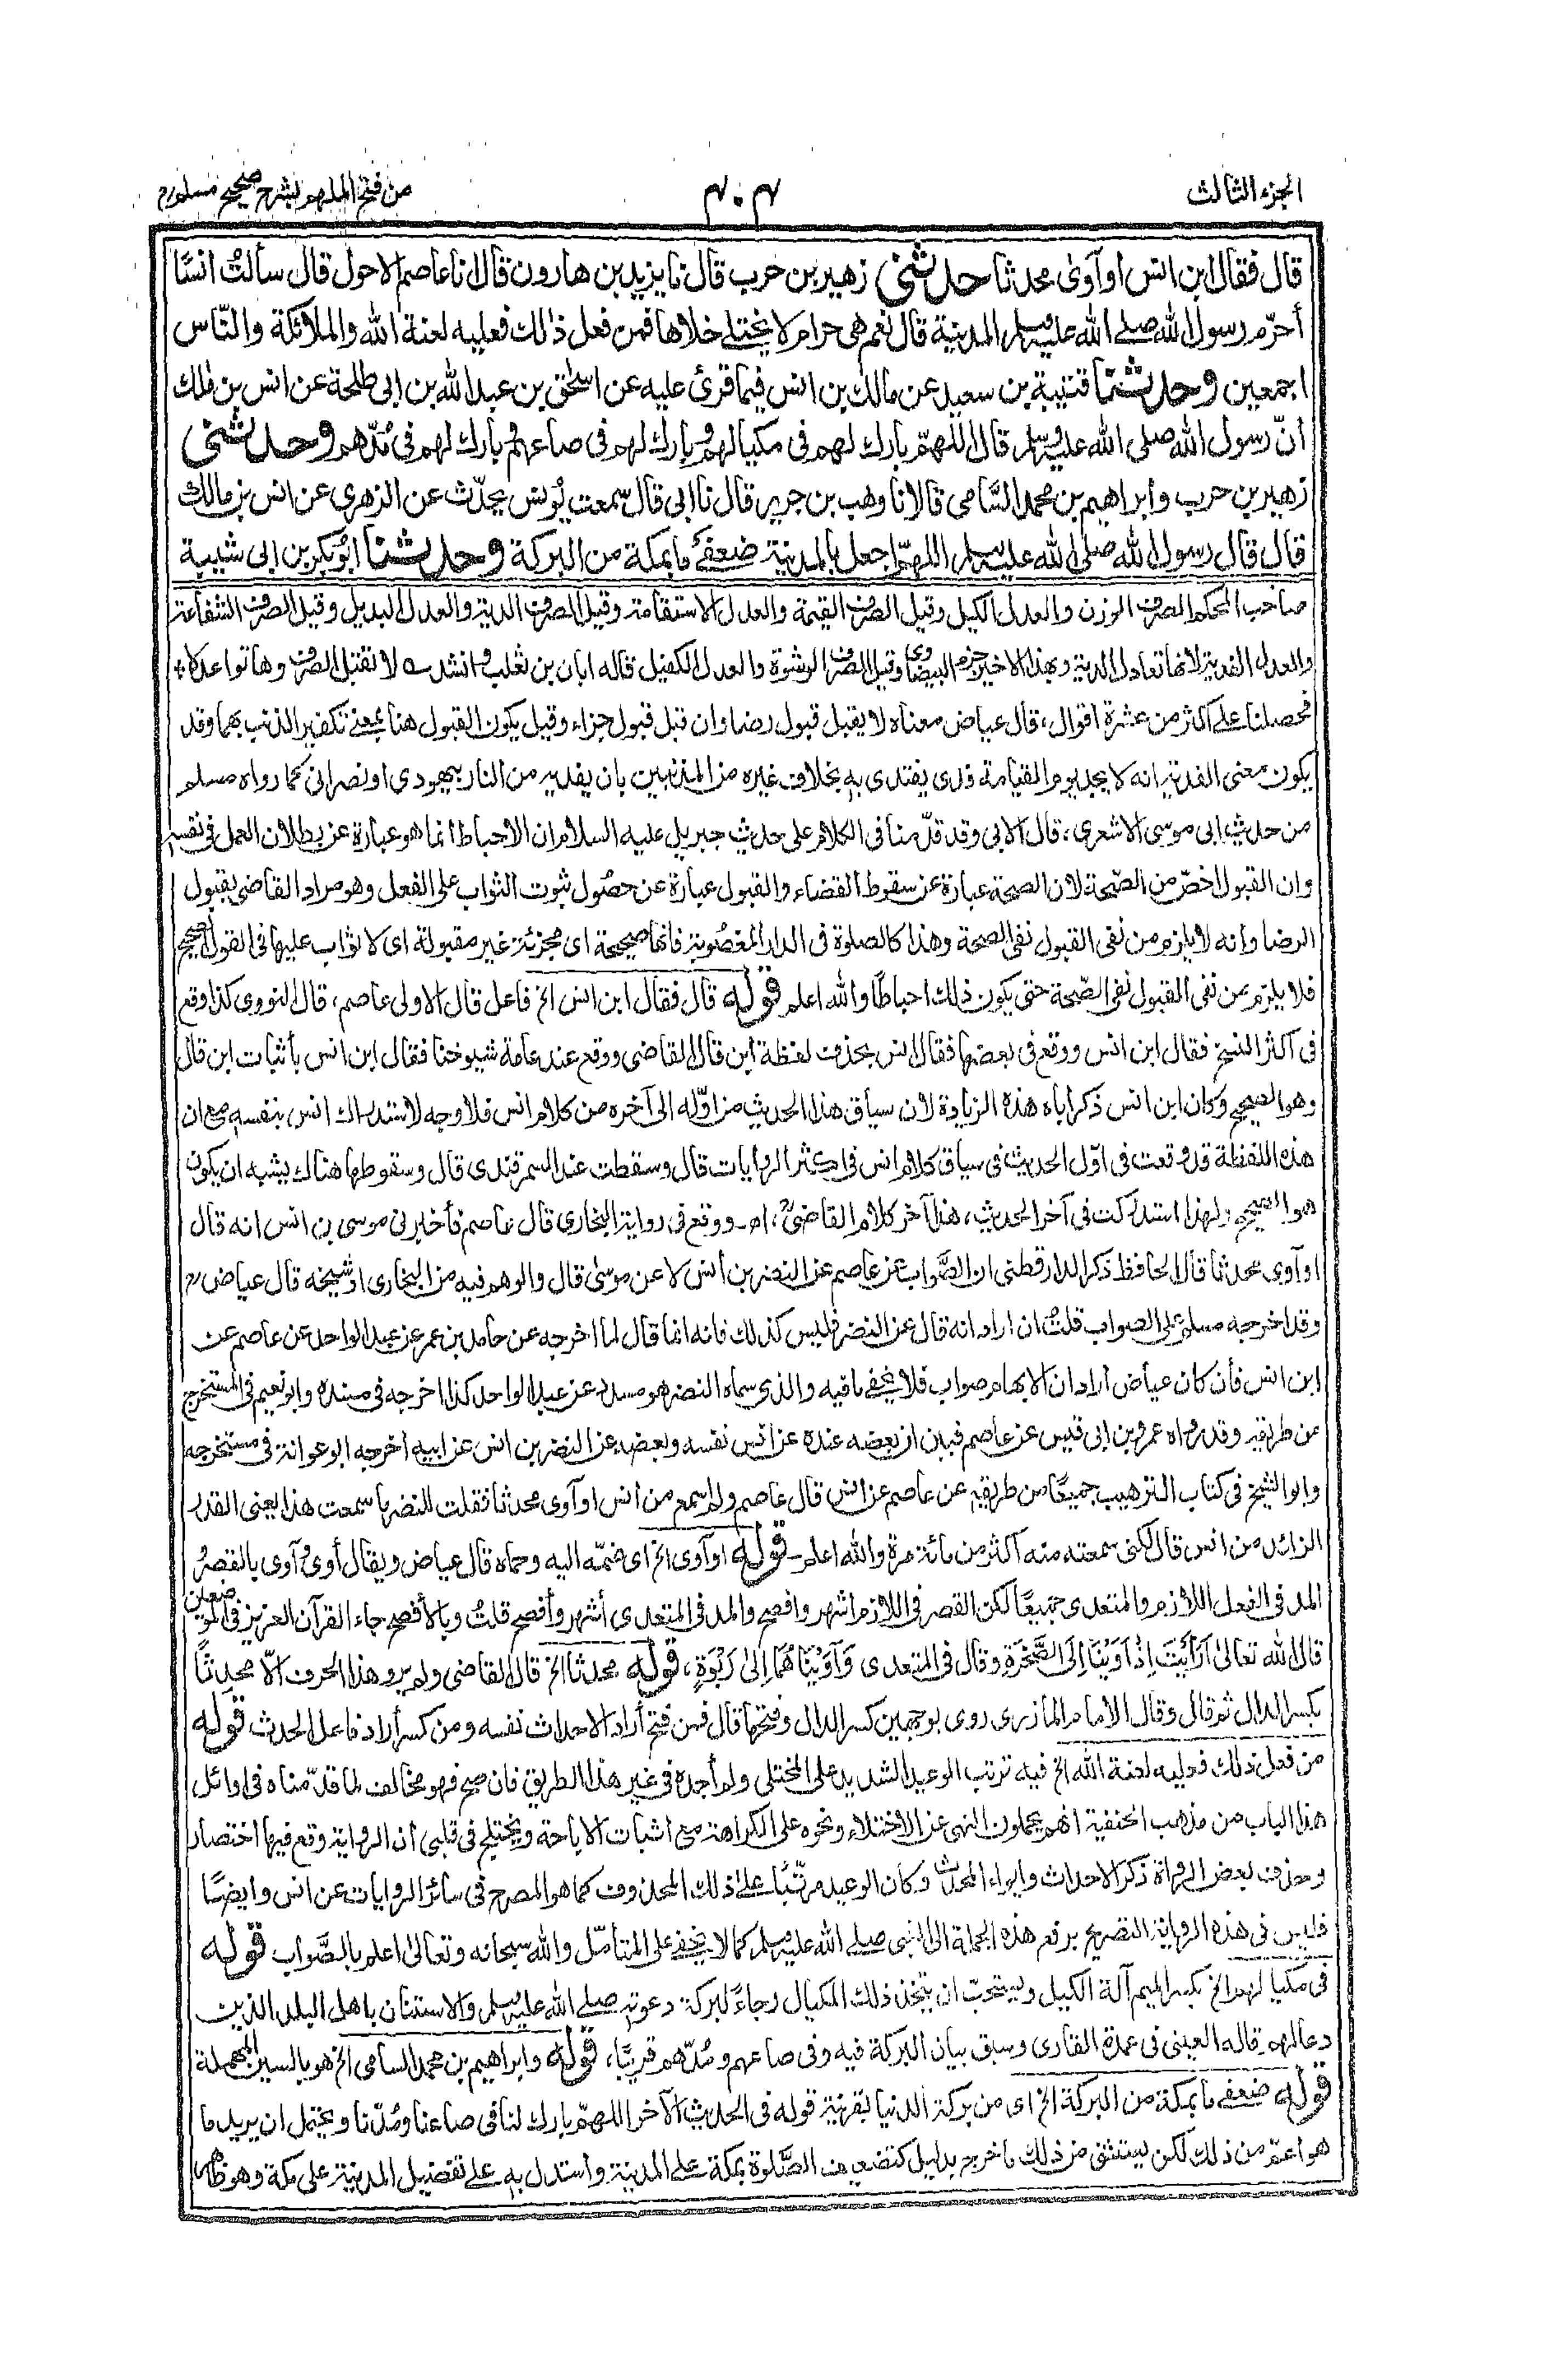 الجزء الثالث
٤٠٤
من فتح الملهم بشرح صحيح مسلم
قال فقال ابن انس او آوى محدثا حدثني زهير بن حرب قال نا يزيد بن هارون قال انا عاصم الاحول قال سألتُ انسًا
أحرّم رسول الله صلے الله عليه وسلم المدينة قال نعم هى حرام لا يختلے خلاها فمن فعل ذالك فعليه لعنة الله والملائكة والنّاس
اجمعين وحدثنا قتيبة بن سعيد عن مالك بن انس فيما قرئ عليه عن اسحٰق بن عبد الله بن ابى طلحة عن انس بن مٰلك
أنّ رسول الله صلى الله عليه وسلم قال اللّٰهمّ بارك لهم فى مكيالهم وبارك لهم فى صاعهم وبارك لهم فى مُدّهم وحدثنى
زهير بن حرب وأبراهيم بن محمد السَّامى قالا نا وهب بن جرير قال نا ابى قال سمعت يُونس يحدّث عن الزهرى عن انس بن مالك
قال قال رسول الله صلى الله عليه وسلم اللهمّ اجعل بالمدينة ضعفے ما بمكة من البركة وحدثنا ابُوبكر بن ابى شيبة
صاحب المحكم الصرف الوزن والعدل الكيل وقيل الصرف القيمة والعدل الاستقامة وقيل الصرف الدية والعدل البديل وقيل الصرف الشفاعة
والعدل الفدية لانها تعادل الدية وبهذا الاخير جزم البيضاوى وقيل الصرف الرشوة والعدل الكفيل قاله ابان بن ثعلب وانشد لا تقبل الصرف وهاتوا عدلا
فحصلنا علے اكثر من عشرة اقوال، قال عياض معناه لا يقبل قبول رضا وان قبل قبول جزاء وقيل يكون القبول هنا بمعنے تكفير الذنب بهما وقد
يكون معنى الفدية انه لا يجد يوم القيامة فدى يفتدى به بخلاف غيره من المذنبين بان يفديه من النار بيهودى او نصرانى كما رواه مسلم
من حديث ابى موسى الاشعرى، قال الابى وقد قدّمنا فى الكلام على حديث جبريل عليه السلام ان الاحباط انما هو عبارة عن بطلان العمل فى نفسه
وان القبول اخصّ من الصّحة لان الصحة عبارة عن سقوط القضاء والقبول عبارة عن حصُول ثبوت الثواب على الفعل وهو مراد القاضى بقبول
الرضا وانه لا يلزم من نفى القبول نفى الصحة وهذا كالصلوة فى الدار المغصُوبة فانها صحيحة اى مجزئة غير مقبولة اى لا ثواب عليها فى القول الصحيح
فلا يلزم من نفى القبول نفى الصّحة حتى يكون ذلك احباطًا والله اعلم قوله قال فقال ابن انس الخ فاعل قال الاولى عاصم، قال النووى كذا وقع
فى اكثر النسخ فقال ابن انس ووقع فى بعضها فقال انس بحذف لفظة ابن قال القاضى ووقع عند عامة شيوخنا فقال ابن انس بأثبات ابن قال
وهو الصحيح وكان ابن انس ذكر اباه هذه الزيادة لان سياق هذا الحديث من اوّله الى آخره من كلام انس فلا وجه لاستدراك انس بنفسه مع ان
هذه اللفظة قد وقعت فى اوّل الحديث فى سياق كلام انس فى اكثر الروايات قال وسقطت عند السمرقندى قال وسقوطها هناك يشبه ان يكون
هو الصحيح ولهذا استدركت فى آخر الحديث، هذا آخر كلام القاضىؒ، اھ ووقع فى رواية البخارى قال عاصم فأخبرنى موسى بن انس انه قال
او آوى محدثا قال الحافظ ذكر الدارقطنى ان الصَّواب عن عاصم عن النضر بن أنس لا عن موسٰى قال والوهم فيه من البخارى او شيخه قال عياضؒ
وقد اخرجه مسلم على الصواب قلتُ ان اراد انه قال عن النضر فليس كذلك فانه انما قال لما اخرجه عن حامد بن عمر عن عبد الواحد عن عاصم عن
ابن انس فأن كان عياض أراد ان الابهام صواب فلا يخفے ما فيه والذى سماه النضر هو مسدد عن عبد الواحد كذا اخرجه فى مسنده وابو نعيم فى المستخرج
من طريقه وقد رواه عمرو بن ابى قيس عن عاصم فبين ان بعضه عنده عن انس نفسه وبعضه عن النضر بن انس عن ابيه أخرجه ابو عوانة فى مستخرجه
وابو الشيخ فى كتاب الترهيب جميعًا من طريقه عن عاصم عن انس قال عاصم ولم اسمع من انس او آوى محدثا فقلت للنضر ما سمعت هذا يعنى القدر
الزائد من انس قال لكنى سمعته منه اكثر من مائة مرة والله اعلم قوله او آوى الخ اى ضمّه اليه وحماه قال عياض ويقال أوى وآوى بالقصر و
المد فى الفعل اللازم والمتعدى جميعًا لكن القصر فى اللازم اشهر وافصح والمد فى المتعدى أشهر وأفصح قلتُ وبالأفصح جاء القرآن العزيز فى الموضعين
قال الله تعالى اَرَاَيْتَ اِذْ اَوَيْنَا اِلَى الصَّخْرَةِ وقال فى المتعدى وَآوَيْنَاهُمَا اِلىٰ رَبْوَةٍ، قوله محدثا الخ قال القاضى ولم يرو هذا الحرف الّا محدِثًا
بكسر الدال ثم قال وقال الامام المازرى روى بوجهين كسر الدال وفتحها قال فمن فتح أراد الاحداث نفسه ومن كسر أراد فاعل الحدث قوله
من فعل ذلك فعليه لعنة الله الخ فيه ترتب الوعيد الشديد على المختلى ولم أجده فى غير هذا الطريق فان صح فهو مخالف لما قدّمناه فى اوائل
هذا الباب من مذهب الحنفية انهم يحملون النهى عن الاختلاء ونحوه على الكراهة مع اثبات الاباحة ويختلج فى قلبى أن الرواية وقع فيها اختصار
وحذف بعض الرواة ذكر الاحداث وايواء المحدث وكان الوعيد مرتّبًا علے ذلك المحذوف كما هو المصرح فى سائر الروايات عن انس وايضًا
فليس فى هذه الرواية التصريح برفع هذه الجملة الى النبى صلے الله عليه وسلم كما لا يخفے على المتأمّل والله سبحانه وتعالىٰ اعلم بالصَّواب قوله
فى مكيالهم الخ بكسر الميم آلة الكيل ويستحبّ ان يتخذ ذلك المكيال رجاءً لبركة دعوته صلے الله عليه وسلم والاستنان باهل البلد الذين
دعا لهم قاله العينى فى عمدة القارى وسبق بيان البركة فيه وفى صاعهم ومُدّهم قريبًا، قوله وابراهيم بن محمد السامى الخ هو بالسين المهملة
قوله ضعفے ما بمكة من البركة الخ اى من بركة الدنيا بقرينة قوله فى الحديث الآخر اللهمّ بارك لنا فى صاعنا ومُدّنا ويحتمل ان يريد ما
هو اعمّ من ذلك لكن يستثنى من ذلك ما خرج بدليل كتضعيف الصَّلوة بمكة علے المدينة واستدل به علے تفضيل المدينة على مكة وهو ظاهر